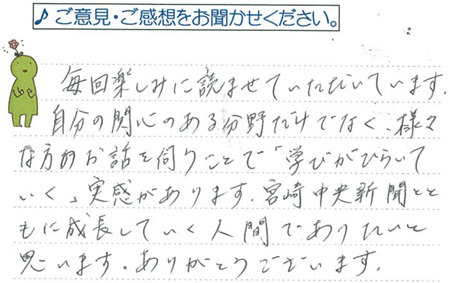 ♪ご意見・ご感想をお聞かせください。
毎回楽しみに読ませていただいています。
自分の関心のある分野だけでなく、様々
な方のお話を伺うことで「学びがひらいて
いく」実感があります。宮崎中央新聞とと
もに成長していく人間でありたいと
思います。ありがとうございます。